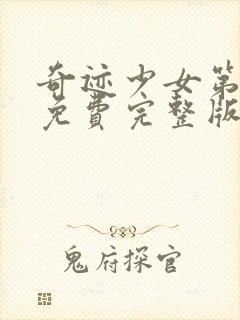 奇迹少女第
免费完整版
鬼府探官